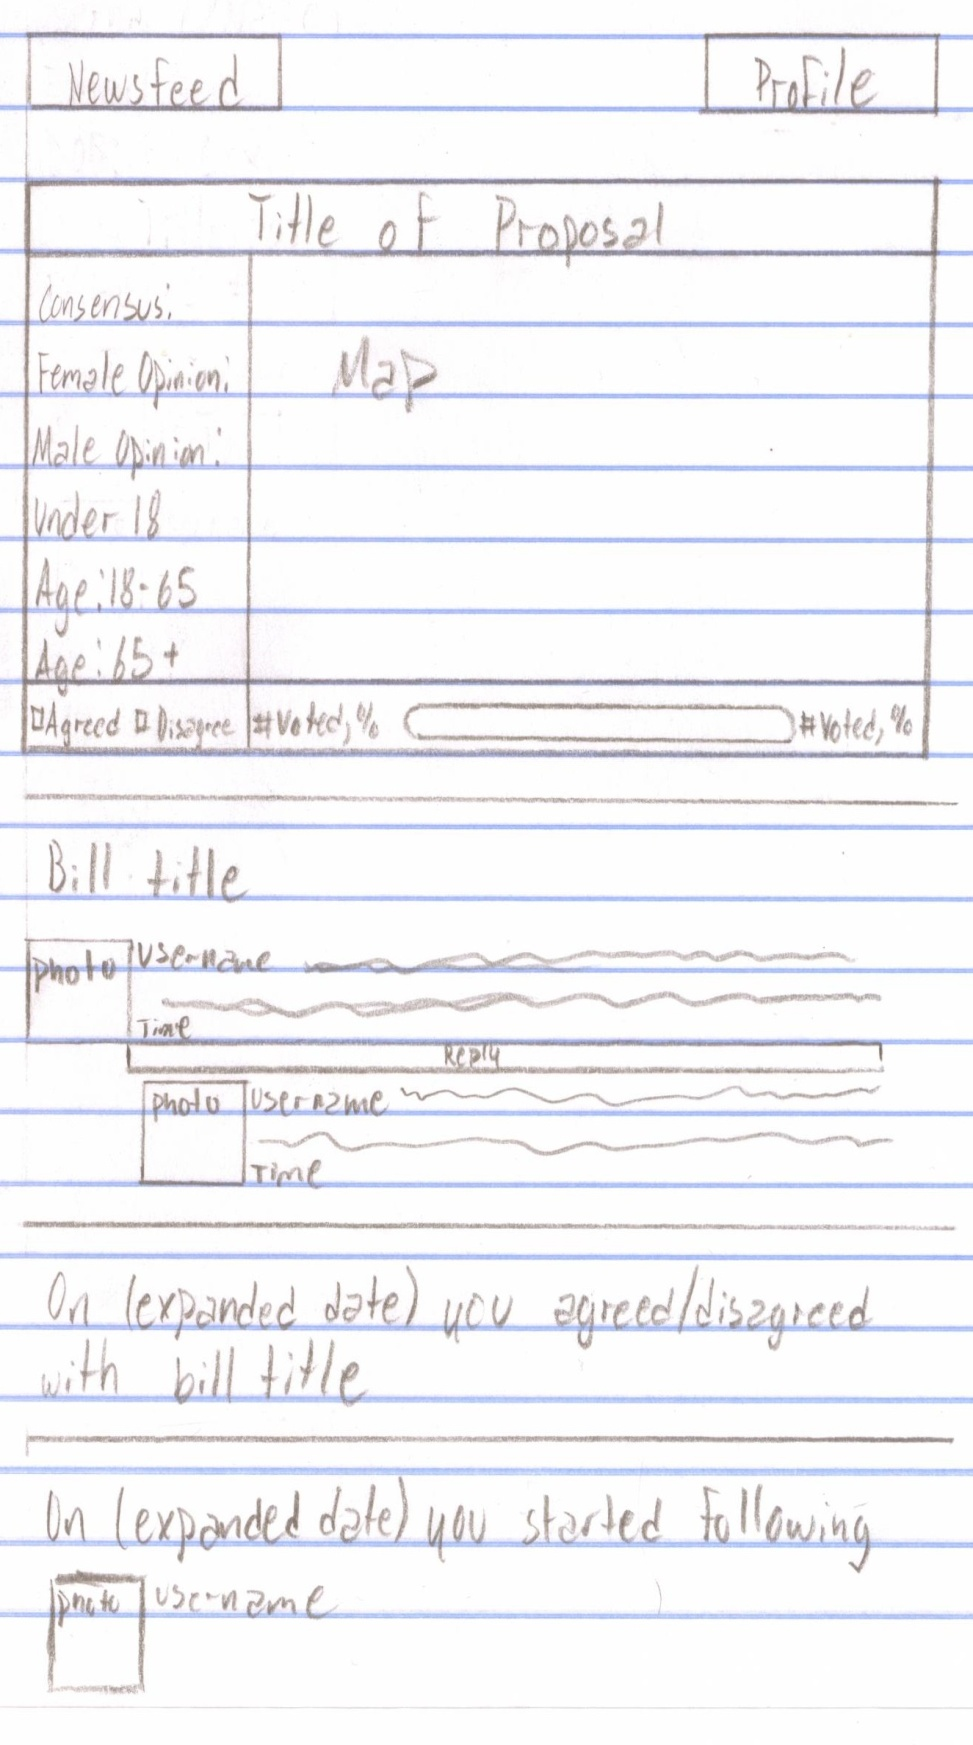 Newsfeed
Profile
Title of Proposal
Consensus:
Female Opinion:
Male Opinion:
Under 18
Age: 18-65
Age: 65+
Agreed Disagree
#Voted, %
#Voted, %
Map
Bill title
photo
Username
Time
Reply
photo
Username
Time
On (expanded date) you agreed/disagreed
with bill title
On (expanded date) you started following
photo
username